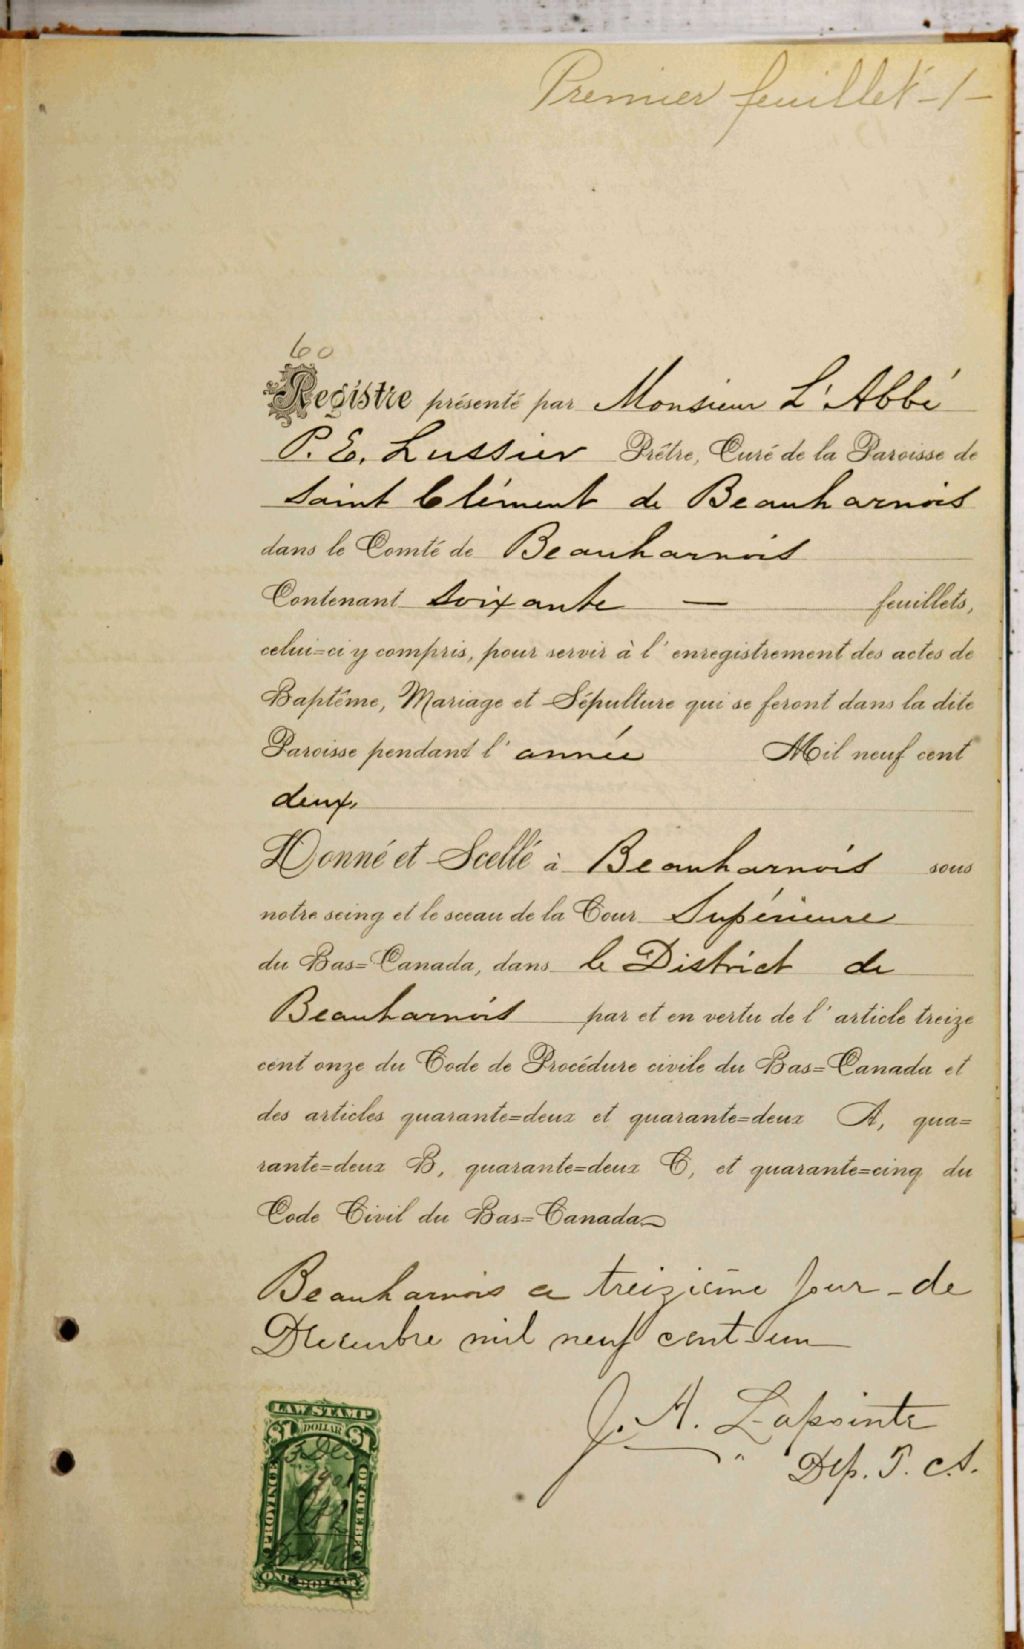 Premier feuillet - 1 -
60
Registre présenté par Monsieur L'Abbé
P. E. Lussier Prêtre, Curé de la Paroisse de
Saint Clément de Beauharnois
dans le Comté de Beauharnois
Contenant soixante — feuillets,
celui=ci y compris, pour servir à l'enregistrement des actes de
Baptême, Mariage et Sépulture qui se feront dans la dite
Paroisse pendant l'année Mil neuf cent
deux,
Donné et Scellé à Beauharnois sous
notre seing et le sceau de la Cour Supérieure
du Bas=Canada, dans le District de
Beauharnois par et en vertu de l'article treize
cent onze du Code de Procédure civile du Bas=Canada et
des articles quarante=deux et quarante=deux A, qua=
rante=deux B, quarante=deux C, et quarante=cinq du
Code Civil du Bas=Canada
Beauharnois ce treizième jour - de
Décembre mil neuf cent un
J. A. Lapointe
Dep. P. C. S.
LAW STAMP
$1 DOLLAR $1
PROVINCE OF QUEBEC
1901
ONE DOLLAR